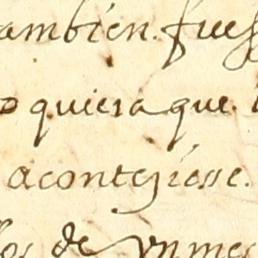 ambien. fues
o quiera que
acontesiese.
los de un mes